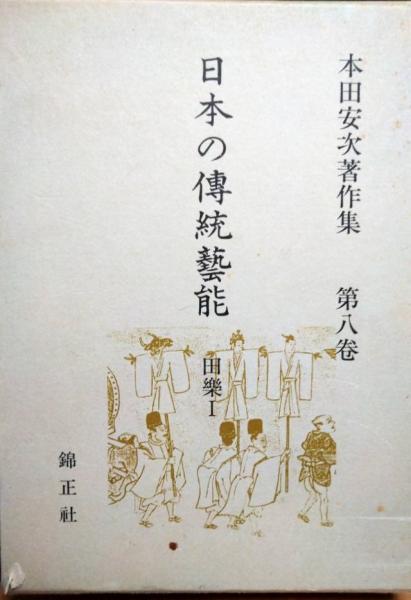 本田安次著作集 第八卷
日本の傳統藝能
田樂Ⅰ
錦正社